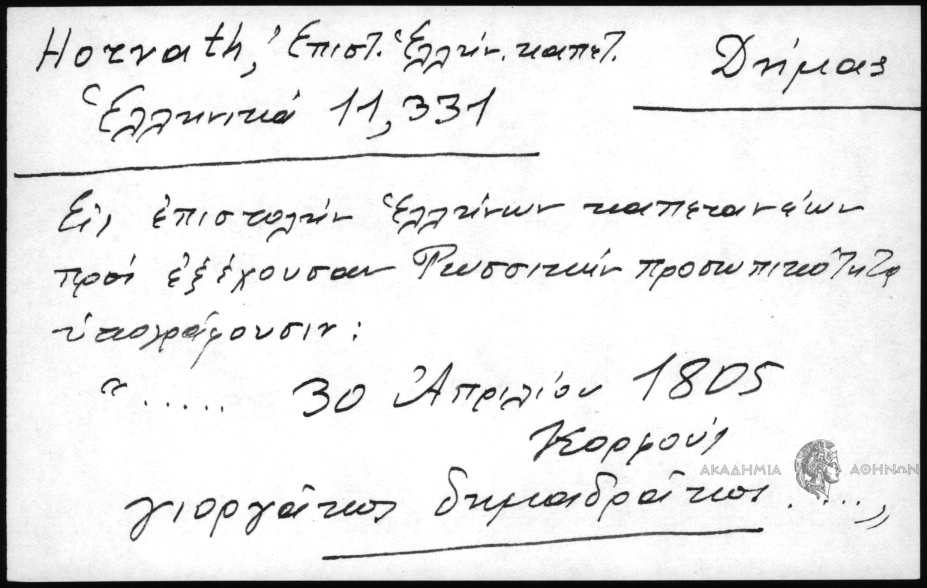 Horvath, Ἐπιστ. Ἑλλήν. καπετ.
Δήμας
Ἑλληνικά 11,331
Εἰς ἐπιστολήν Ἑλλήνων καπετανέων
πρός ἐξέχουσαν Ρωσσικήν προσωπικότητα
ὑπογράφουσιν:
“..... 30 Ἀπριλίου 1805
Κορφούς
ΑΚΑΔΗΜΙΑ ΑΘΗΝΩΝ
γιοργάκις δημαδράκις.....”